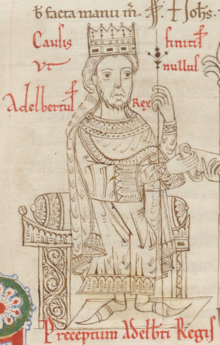 facta manu
Causis finitis
Ut nullus
Adelbertus Rex
Preceptum Adelbti Regis